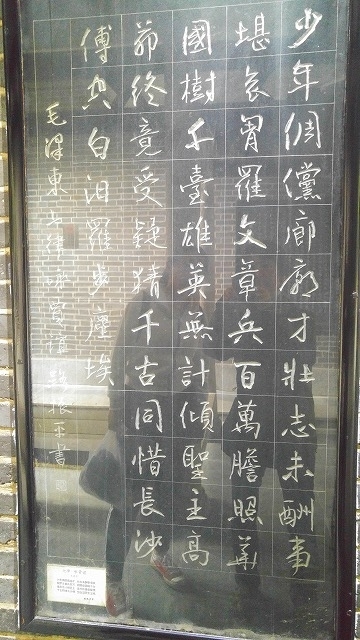 少年倜儻廊廟才壯志未酬事
堪哀胷羅文章兵百萬膽照華
國樹千臺雄英無計傾聖主高
節終竟受疑猜千古同惜長沙
傅空白汨羅步塵埃
毛澤東七律詠賈誼 振平書